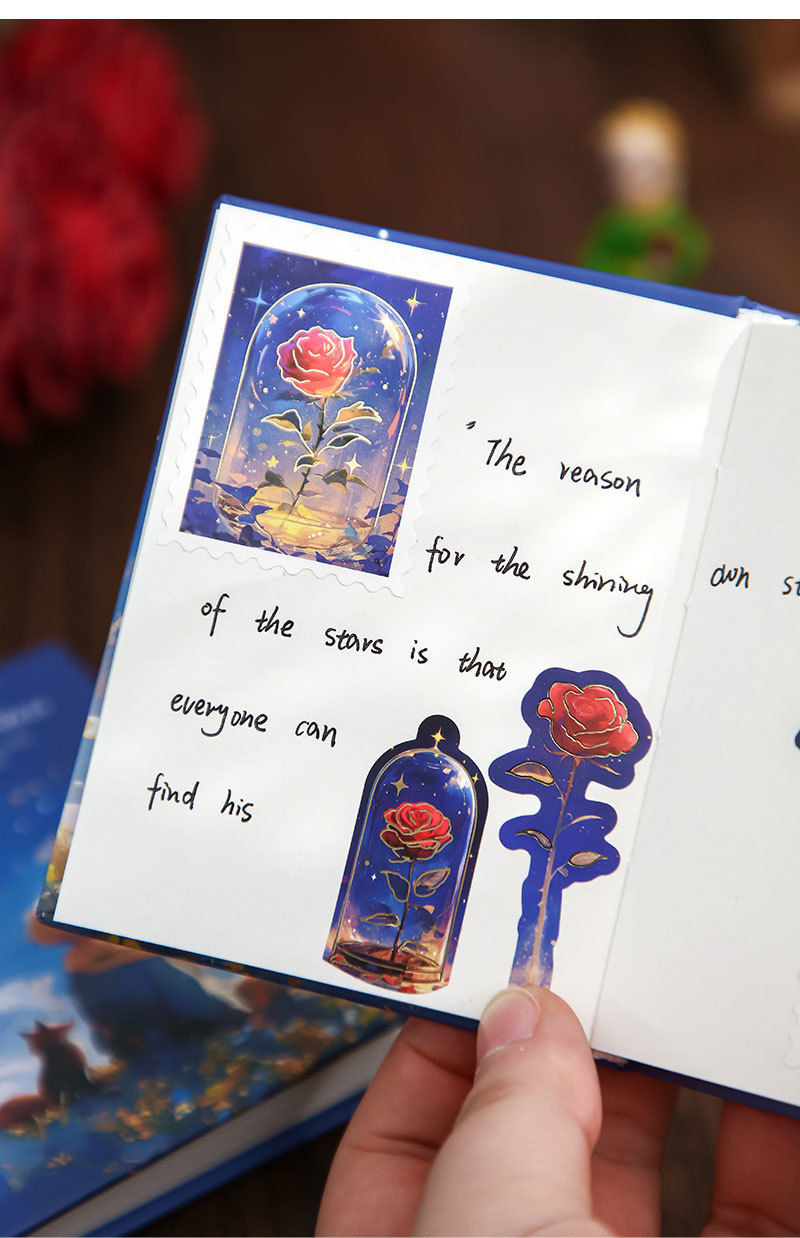 "The reason
for the shining
of the stars is that
everyone can
find his
own